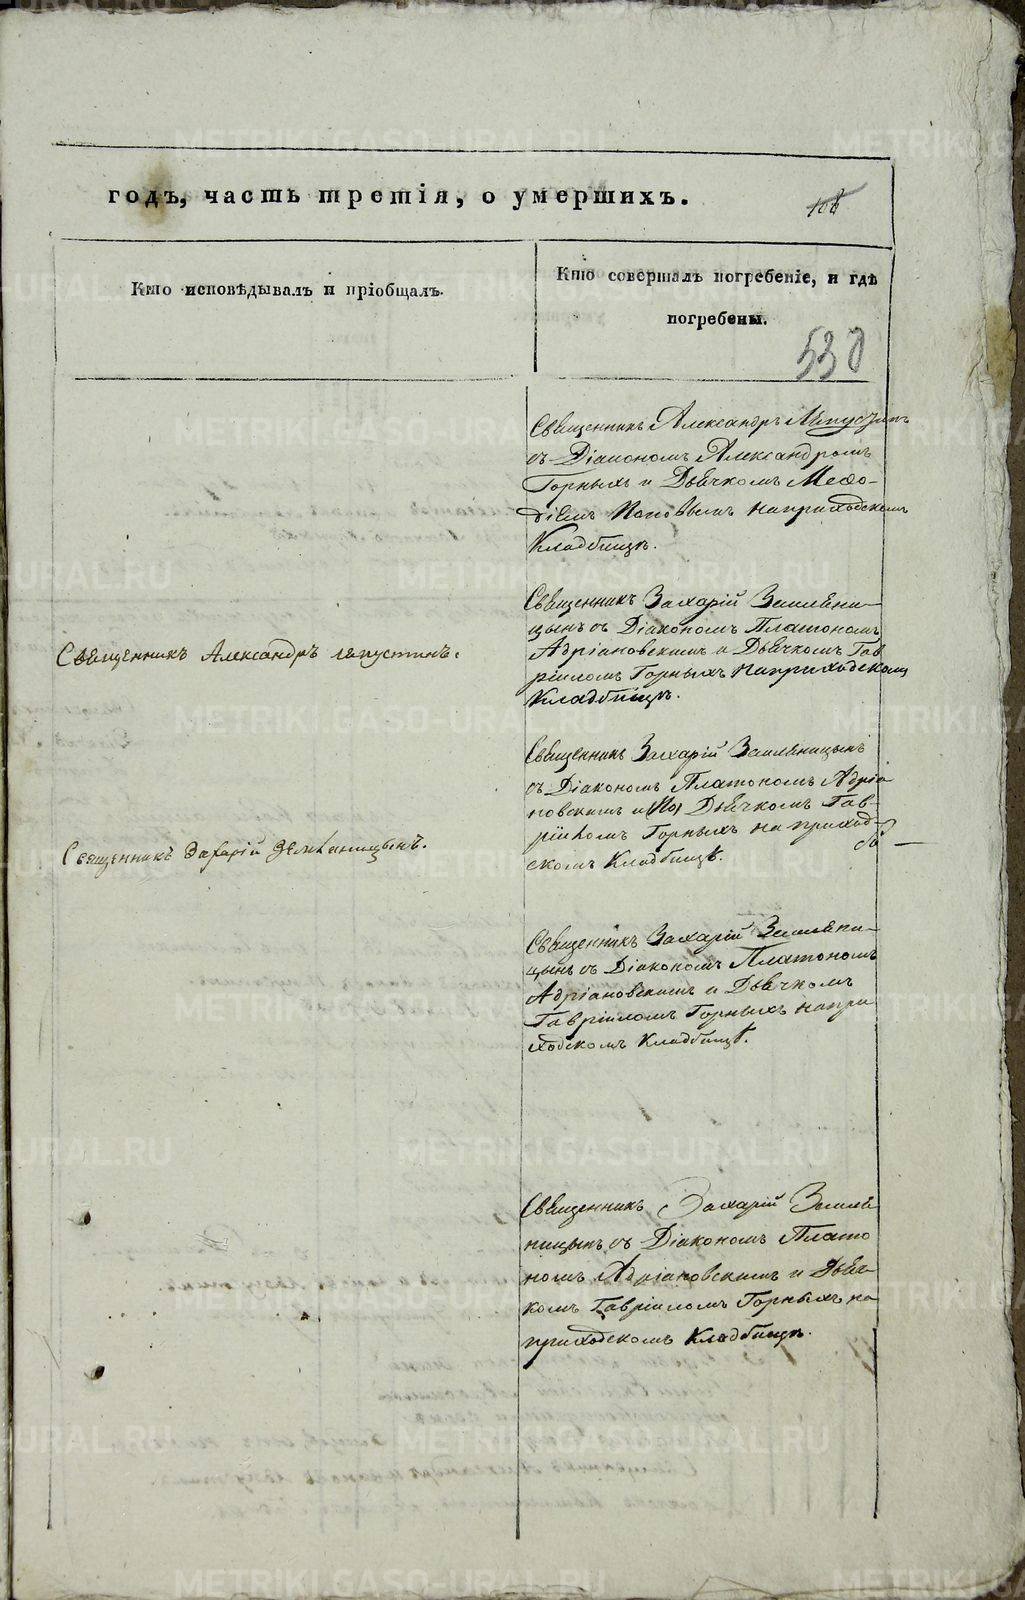 годъ, часть третія, о умершихъ.
108
Кто исповѣдывалъ и пріобщалъ.
Кто совершалъ погребеніе, и гдѣ
погребены.
538
Священникъ Александръ
съ Діакономъ Александромъ
Горныхъ и Дьячкомъ Меѳо-
діемъ Поповымъ на приходскомъ
Кладбищѣ.
Священникъ Захарій Землѣни-
цынъ съ Діакономъ Платономъ
Священникъ Александръ Лапустинъ.
Адріановскимъ и Дьячкомъ Гав
ріиломъ Горныхъ на приходскомъ
Кладбищѣ.
Священникъ Захарій Землѣницынъ
съ Діакономъ Платономъ Адріа
новскимъ и Дьячкомъ Гав-
ріиломъ Горныхъ на приход-
Священникъ Захарій Земляницынъ.
скомъ Кладбищѣ.
Священникъ Захарій Землѣни-
цынъ съ Діакономъ Платономъ
Адріановскимъ и Дьячкомъ
Гавріиломъ Горныхъ на при
ходскомъ Кладбищѣ.
Священникъ Захарій Землѣ
ницынъ съ Діакономъ Плато
номъ Адріановскимъ и Дьяч-
комъ Гавріиломъ Горныхъ на
приходскомъ Кладбищѣ.
METRIKI.GASO-URAL.RU